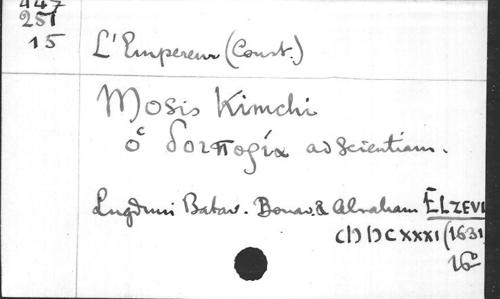 447
251
15
L'Empereur (Const.)
Mosis Kimchi
ὁ δοιπογία ad scientiam.
Lugduni Batav. Bonav. & Abraham ELZEVI
CIƆ IƆC XXXI (1631
16°